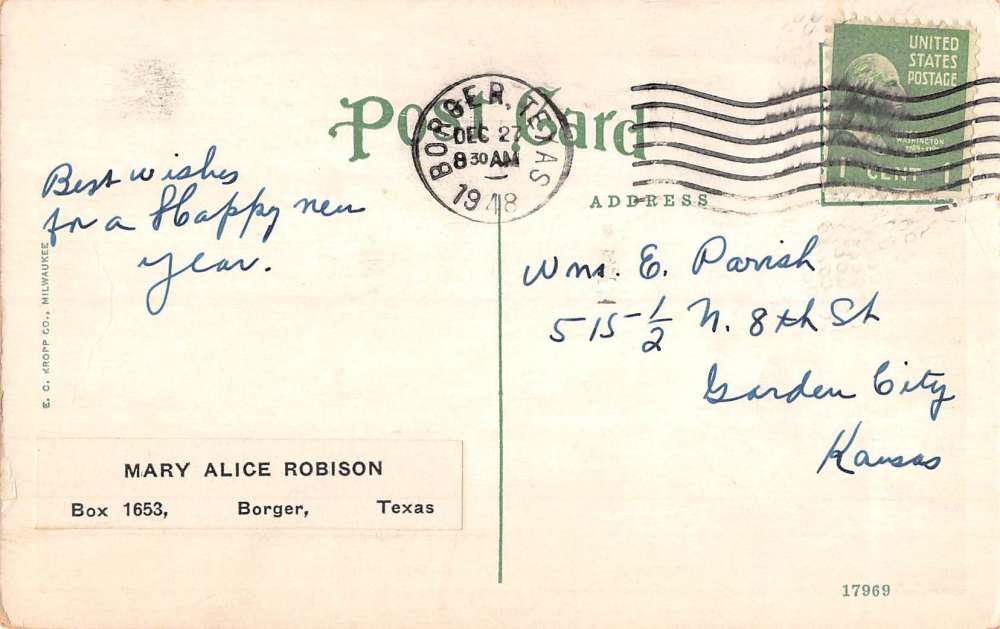 Post Card
BORGER, TEXAS
DEC 27
8 30 AM
1948
UNITED
STATES
POSTAGE
WASHINGTON
1 CENT 1
ADDRESS
Best wishes
for a Happy new
year.
Wm. E. Parish
515-1/2 N. 8th St
Garden City
Kansas
E. C. KROPP CO., MILWAUKEE
MARY ALICE ROBISON
Box 1653, Borger, Texas
17969